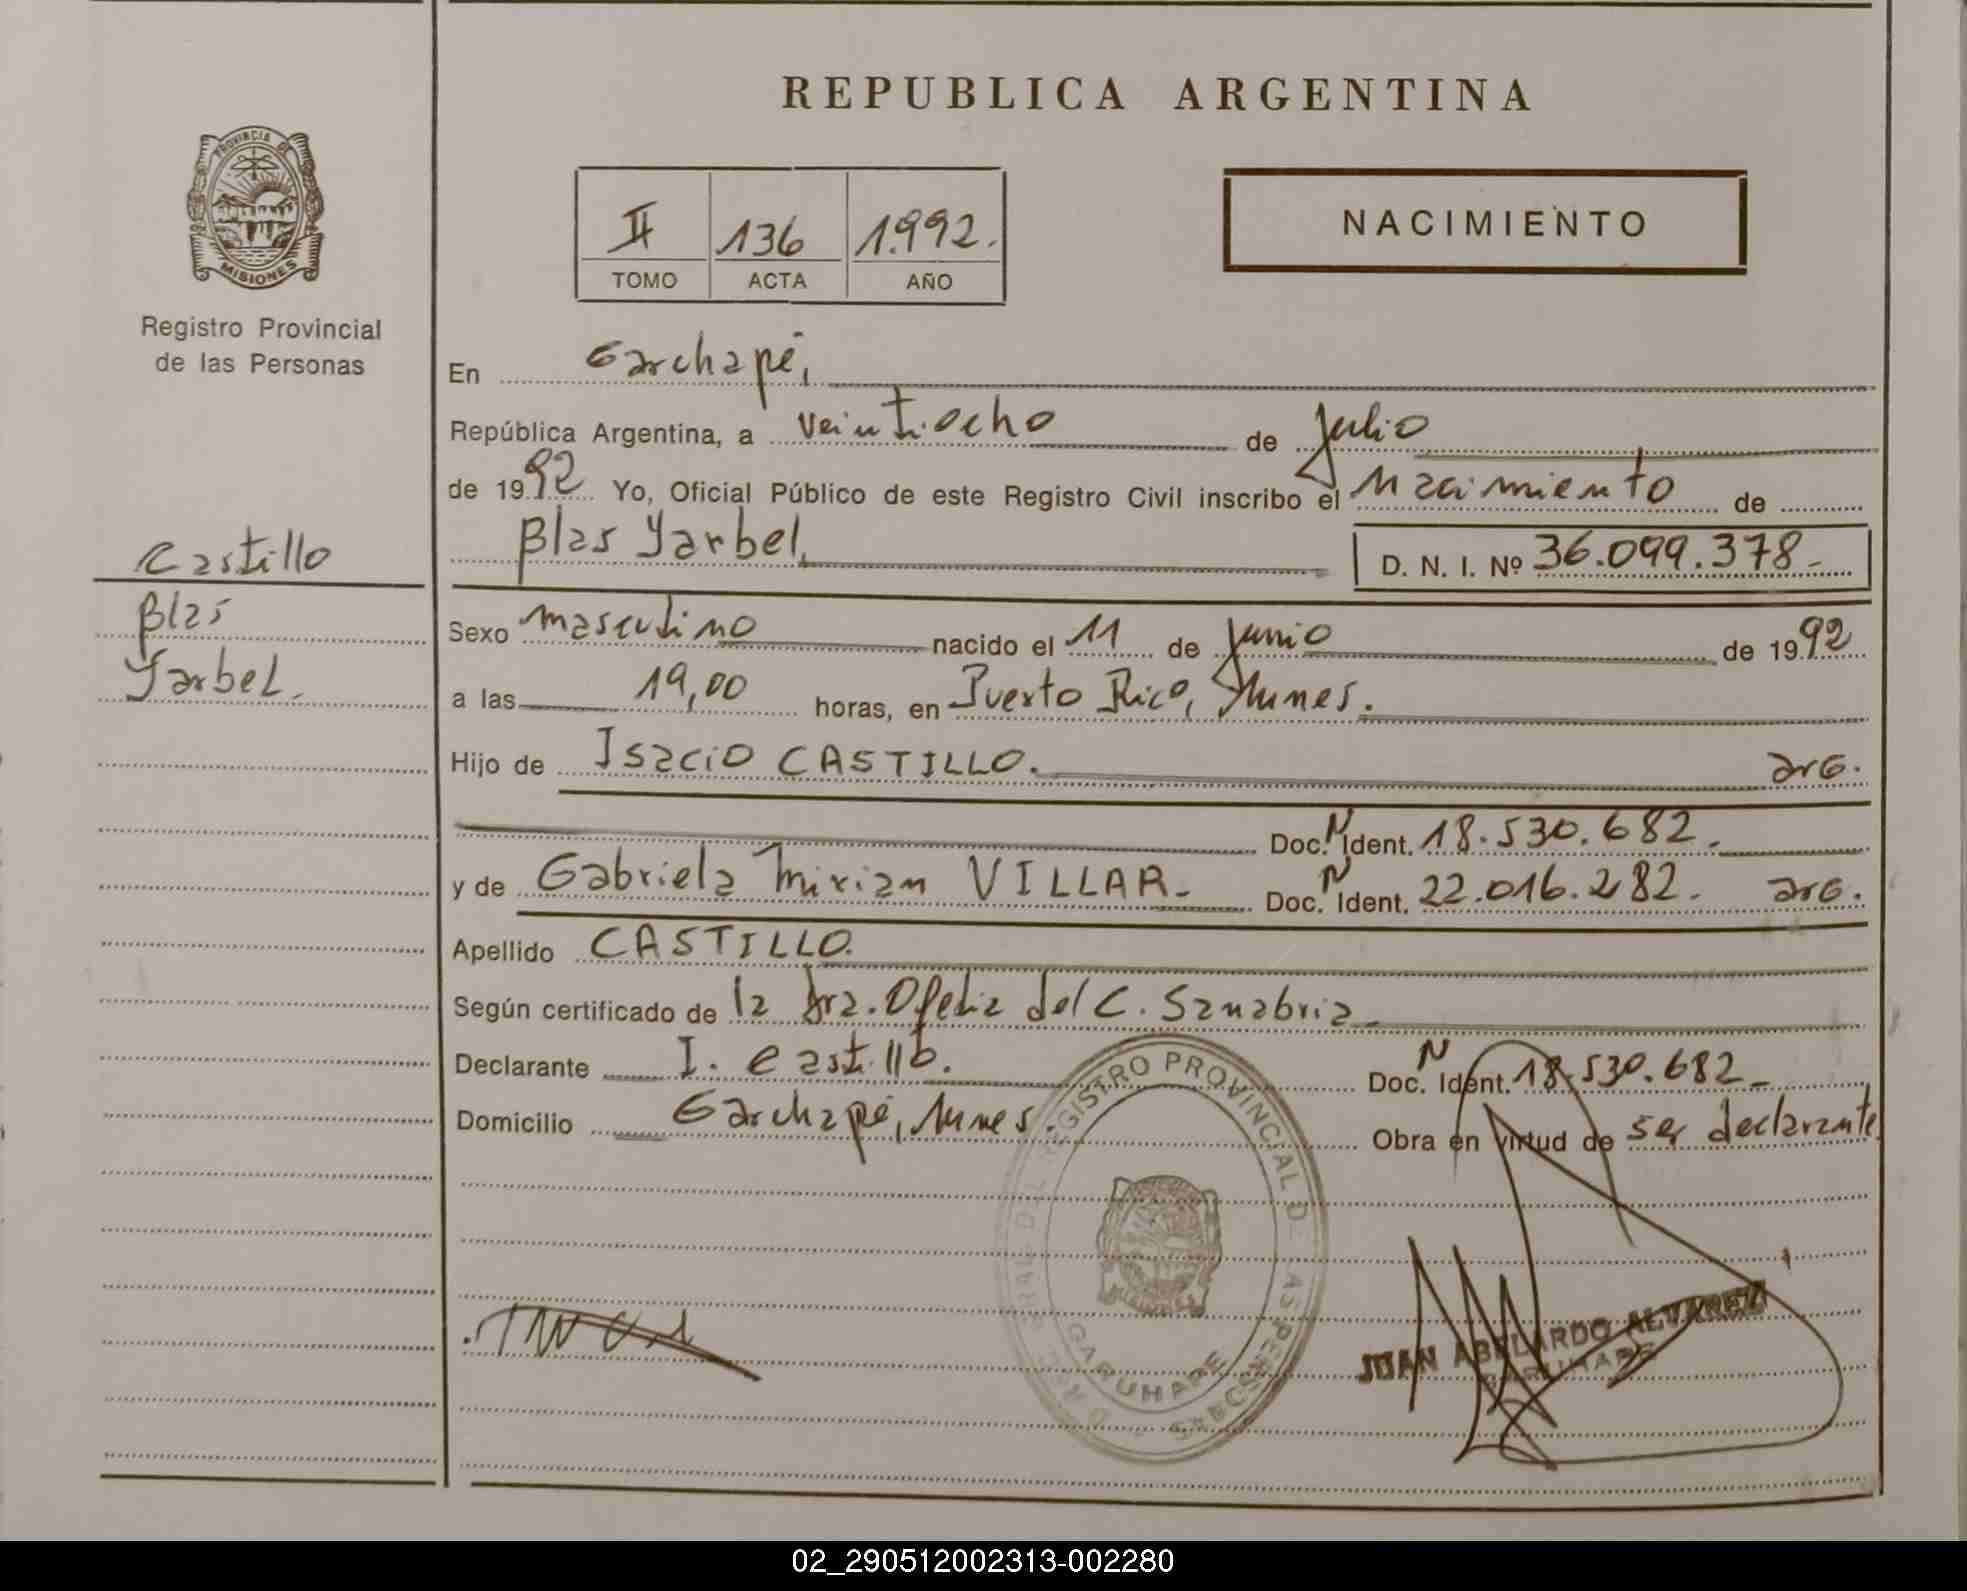 REPUBLICA ARGENTINA
PROVINCIA DE
MISIONES
Registro Provincial
de las Personas
II 136 1.992.
TOMO ACTA AÑO
NACIMIENTO
En Garhapé,
República Argentina, a veintiocho de julio
de 1992 Yo, Oficial Público de este Registro Civil inscribo el Nacimiento de
Blas Yarbel, D. N. I. Nº 36.099.378.-
Castillo
Blas
Yarbel.
Sexo masculino nacido el 11 de junio de 1992
a las 19,00 horas, en Puerto Rico, Mnes.
Hijo de Isacio CASTILLO. arG.
Doc. N Ident. 18.530.682.-
y de Gabriela Mirian VILLAR.- Doc. N Ident. 22.016.282. arG.
Apellido CASTILLO.
Según certificado de la Dra. Ofelia del C. Sanabria.-
Declarante I. Castillo. Doc. N Ident. 18.530.682.-
Domicilio Garhapé, Mnes. Obra en virtud de ser declarante
REGISTRO PROVINCIAL DE LAS PERSONAS
GARUHAPE
JUAN ABELARDO ALVAREZ
GARUHAPE
02_290512002313-002280